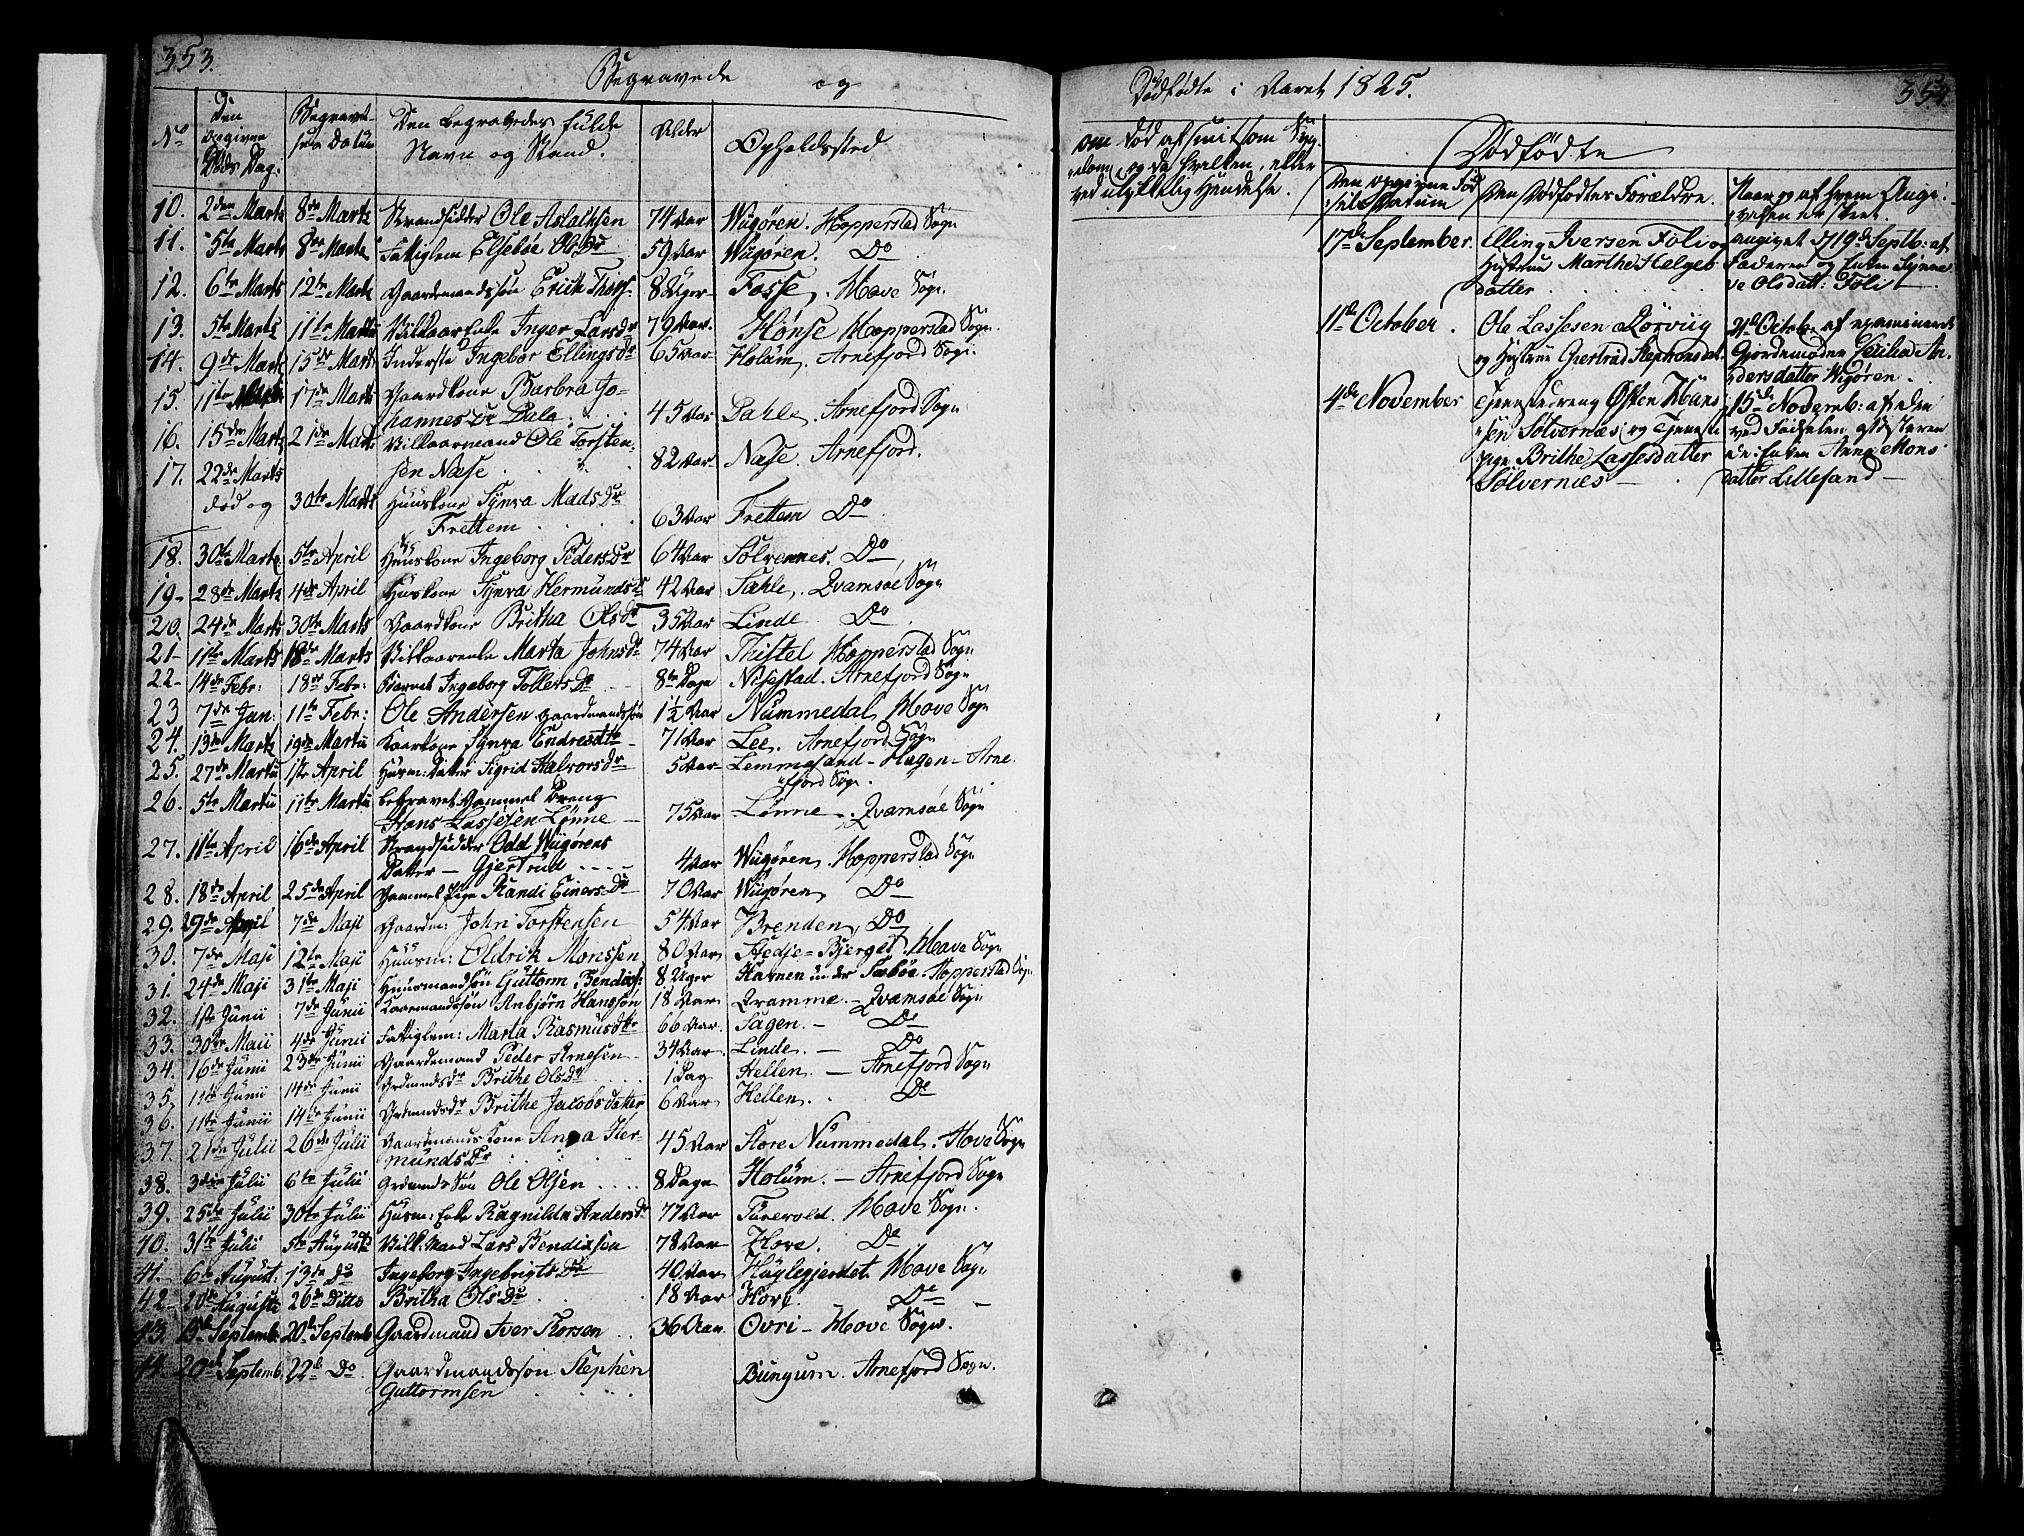 353.
Begravede og
No
Den angivne Døds Dag.
Begravelsens Datum
Den begravedes fulde Navn og Stand.
Alder
Opholdssted
10. 2den Marts 8de Marts Strandsidder Ole Aslaksen 74 Aar Wigøren. Hopperstad Sogn
11. 5te Marts 8de Marts Fattiglem Elsebee Olsdr 59 Aar Wugøren. Do
12. 6te Marts 12te Marts Gaardmandssøn Erick Thors- 8 Uger Fosse. Hove Sogn.
13. 5te Marts 11te Martii Vilkaarenke Inger Larsdr 79 Aar. Hønse Hopperstad Sogn.
14. 9de Marts 15de Marts Inderste Ingebor Ellingsdr 65 Aar Holum. Arnefjord Sogn.
15. 11te Marts 17de Marts Gaardkone Barbra Jo-
hannesdr Dale 45 Aar Dahle. Arnefjord Sogn
16. 15de Marts 21de Marts Vilkaarmand Ole Torsten-
sen Næse 82 Aar Næse. Arnefjord.
17. 22de Marts
død og 30te Marts Huuskone Synva Madsdr
Frettem 63 Aar Frettem Do
18. 30te Marts 5te April Huuskone Ingeborg Pedersdr 64 Aar Sølvernes. Do
19. 28de Marts 4de April Huskone Synva Hermundsdr 42 Aar Sahle. Qvamsøe Sogn
20. 24de Marts 30te Marts Gaardkone Britha Olsdr 35 Aar Linde Do
21. 11te Marts 18de Marts Vilkaarenke Marta Johnsdr 74 Aar Thistel Hopperstad Sogn
22. 14de Febr: 18de Febr: Barnet Ingeborg Tollefsdr 8te Dage Nisestad. Arnefjord Sogn
23 7de Jan: 11te Febr: Ole Andersen Gaardmandssøn 1½ Aar Nummedal Hove Sogn
24. 13de Marts 19de Martii Kaarkone Synva Endresdtr 71 Aar Lee. Arnefjord Sogn
25. 27de Martii 1ste April Huusm: Datter Sigrid Halvorsdr 5 Aar Lemmesand-Hagen- Arne-
fjord Sogn.
26. 5te Martii 11te Martii begravet Gammel Dreng
Hans Lassesen Lønne 75 Aar Lønne. Qvamsøe Sogn
27. 11te April 16de April Strandsidder Odd Wiigørens
Datter - Gjertrud 4 Aar Wiigøren. Hopperstad Sogn
28. 18de April 25de April Gammel Pige Randi Einersdr 70 Aar Wiigøren Do
29. 29de April 7de Maji Gaardm: John Torstensen 54 Aar Brenden Do
30. 7de Maji 12te Maji Huusm: Oldrik Monssen 80 Aar Hedje-Bjerget. Hove Sogn
31. 24de Maji 31te Maji Huusmandssøn Guttorm Bendixs: 8 Uger Havnen under Sæbøe Hopperstad Sogn
32. 1ste Junii 7de Junii Kaarmandssøn Anbjørn Hanssøn 18 Aar Qvamme - Qvamsøe Sogn
33. 30te Maii 4de Junii Fattiglem: Marta Rasmusdtr 66 Aar. Sagen. - Do
34. 16de Junii 23de Junii Gaardmand Peder Arnesen 34 Aar Linde. - Do
35. 11te Junii 14de Junii Grdmandsdr Brithe Olsdr 1 Dag Hellen. - Arnefjord Sogn
36. 11te Junii 14de Junii Grdmandsdr Brithe Jacobsdatter 6 Aar Hellen. Do
37. 21de Julii 26de Julii Gaardmands Kone Anna Her-
mundsdr 45 Aar Store Nummedal. Hove Sogn
38. 3die Julii 6te Julii Grdmands Søn Ole Olsen 8 Dage Holum. - Arnefjord Sogn
39. 25de Julii 30te Julii Husm: Enke Ragnilda Andersdr 77 Aar Turevold. Hove Sogn.
40. 31te Julii 5te Augusti Vilk: Mand Lars Bendixsen 78 Aar Hove. Do
41. 6te August: 13de Do Ingeborg Ingebrigtsdr 40 Aar Høylegjerdet. Hove Sogn
42. 20de Augusti 26de Ditto Britha Olsdr 18 Aar Hove. Do
43. 15de Septemb: 20de Septemb Gaardmand Iver Thorsen 36 Aar Ovri - Hove Sogn.
44. 20de Septemb. 22de Do Gaardmandssøn Stephen
Guttormsen Bungum. Arnefjord Sogn.
Dødfødte i Aaret 1825.
354.
om død af smitsom Syg-
dom, og da hvilken, eller
ved ulykkelig Hændelse.
Dødfødte
Den opgivne Fød-
sels Datum
Den Dødfødtes Forældre.
Naar og af hvem Angi-
velsen er skeet.
17de September. Elling Iversen Føli og
Hustrue Marthe Helges-
datter
angivet d 19de Septb: af
Faderen og Enken Synne-
ve Olsdatt: Føli
11te October. Ole Lassesen Rørviig
og Hustrue Giertrud Stephensdat.
21de Octob: af examinerede
Gjordemoder Cecilia An-
dersdatter Wigøren.
4de November Tjenestedreng Østen Hans-
sen Sølvernæs og Tjeneste-
pige Brithe Lassesdatter
Sølvernæs
15de Novemb: af den
ved Fødselen assisteren-
de: Enken Anna Mons-
datter Lillesand